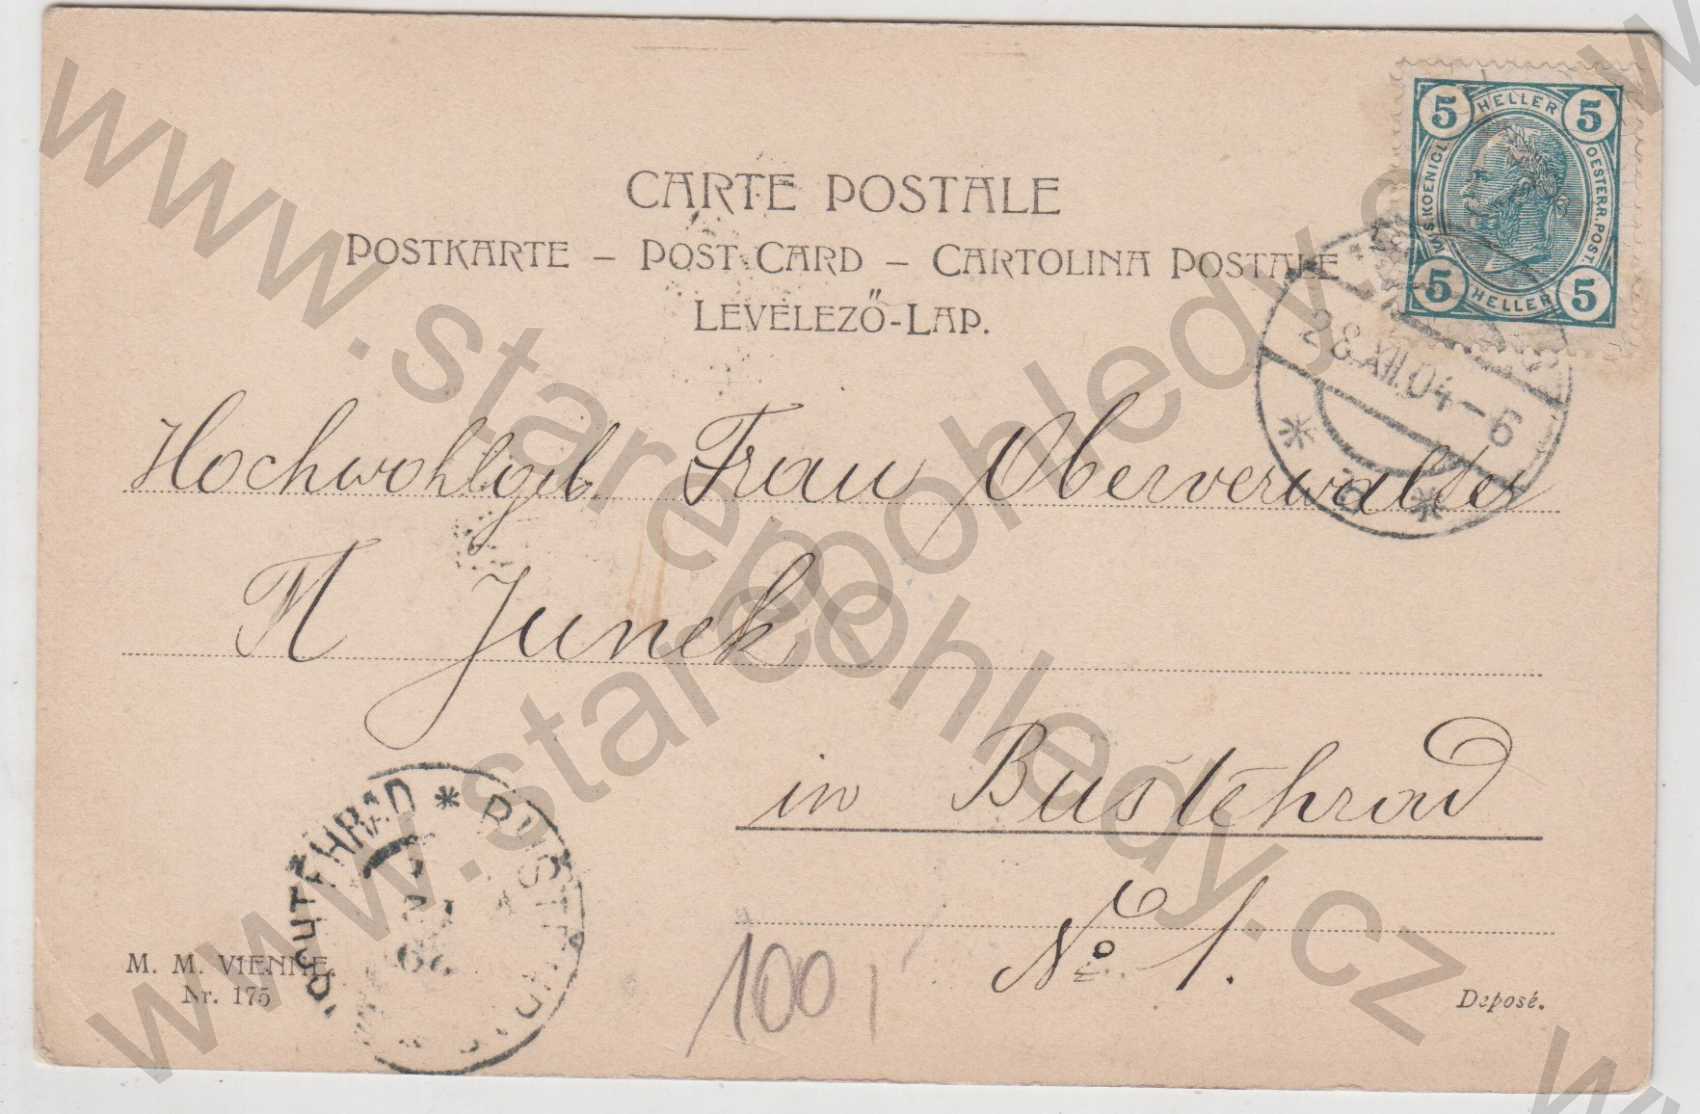 CARTE POSTALE
POSTKARTE – POST CARD – CARTOLINA POSTALE
LEVÉLEZŐ-LAP.
5 HELLER 5
KOENIGL. OESTERR. POST.
5 HELLER 5
28.XII.04–6
* *
Hochwohlgeb. Frau Oberverwalter
M Junek
in Buštěhrad
No 1.
BUŠTĚHRAD *
M. M. VIENNE.
Nr. 175
100,
Deposé.
www.starepohledy.cz
www.starepohledy.cz